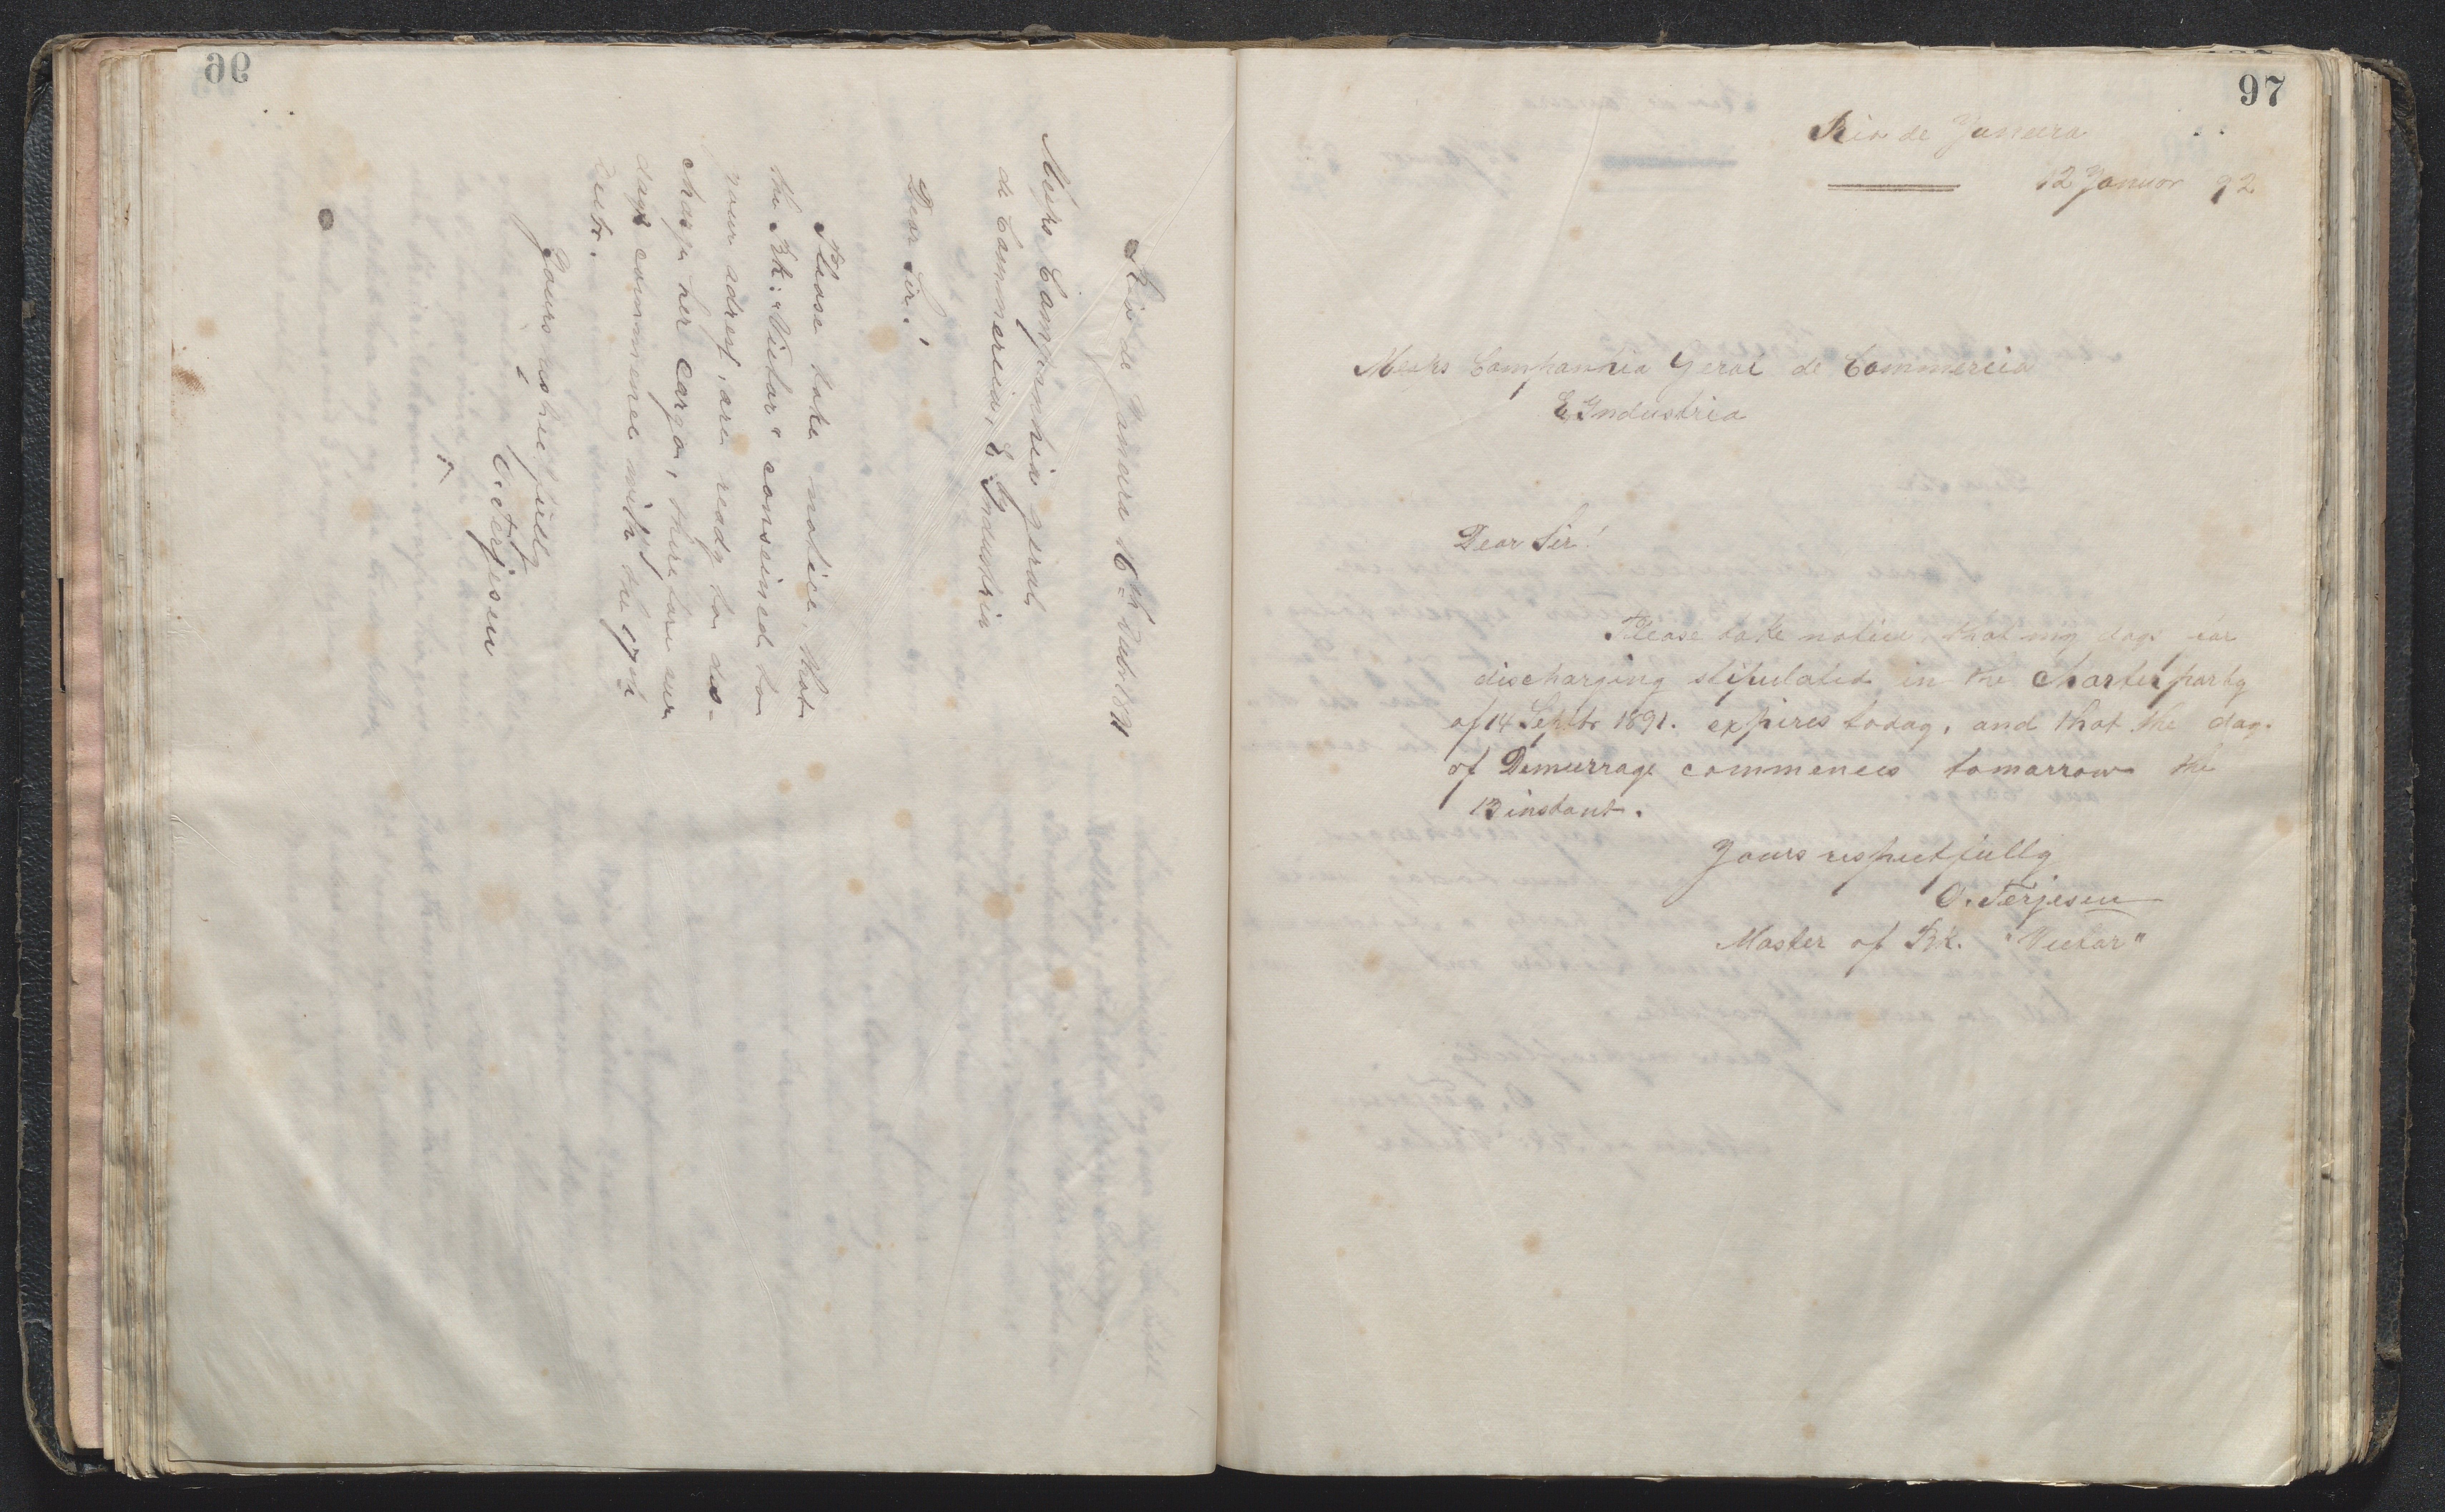 96
Rio de Janeira 16th Dcbr. 1891
Messrs Companhia geral
de Commercia, E Industria
Dear Sir!
Please take notice, that
the Bk: "Victor" consained to
your adress, are ready to dis-
charge her cargo, therefore our
days commence with the 17th
Dcbr.
Yours respectfully
O. Terjesen
97
Rio de Janeira
12 Januar 92
Messrs Companhia Geral de Commercia
E Industria
Dear Sir!
Please take notice, that my days for
discharging stipulated in the Charterparty
of 14 Septbr 1891. expires today, and that the days
of Demurrage commences tomarrow the
13 instant.
Yours respectfully
O. Terjesen
Master of Bk. "Victor"